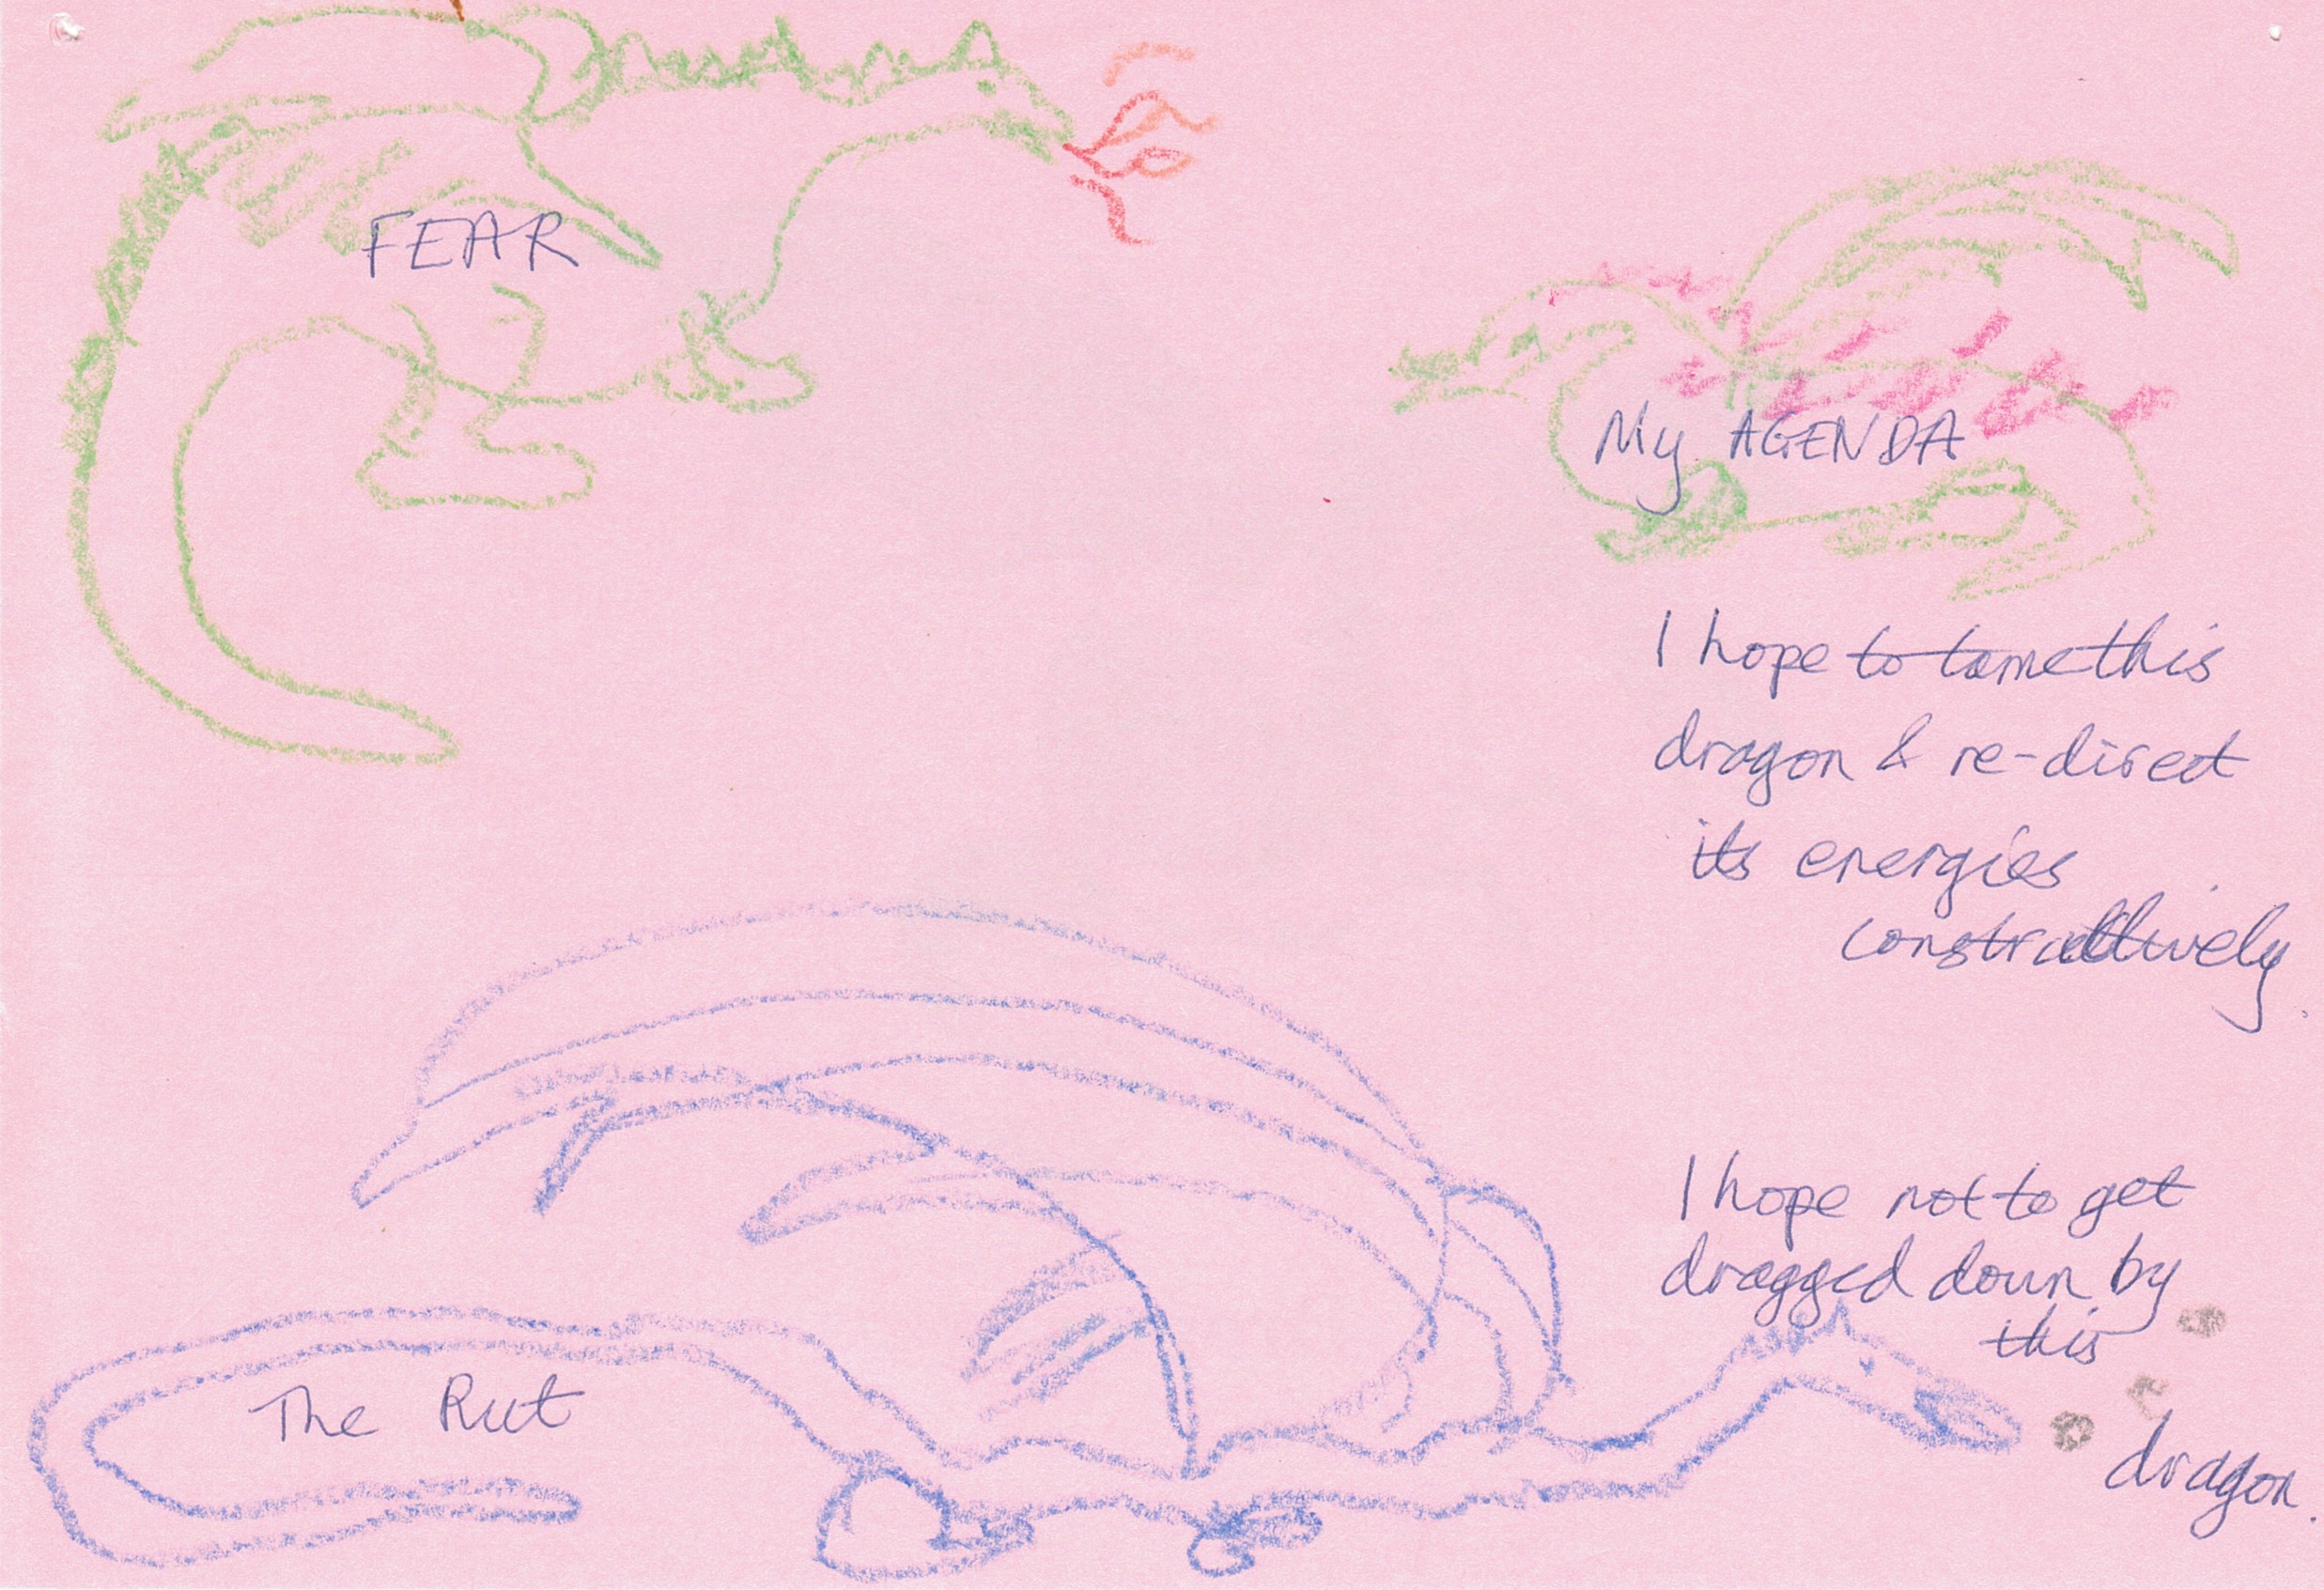 FEAR
My AGENDA
I hope to tame this
dragon & re-direct
its energies
constructively.
I hope not to get
dragged down by
this
dragon.
The Rut